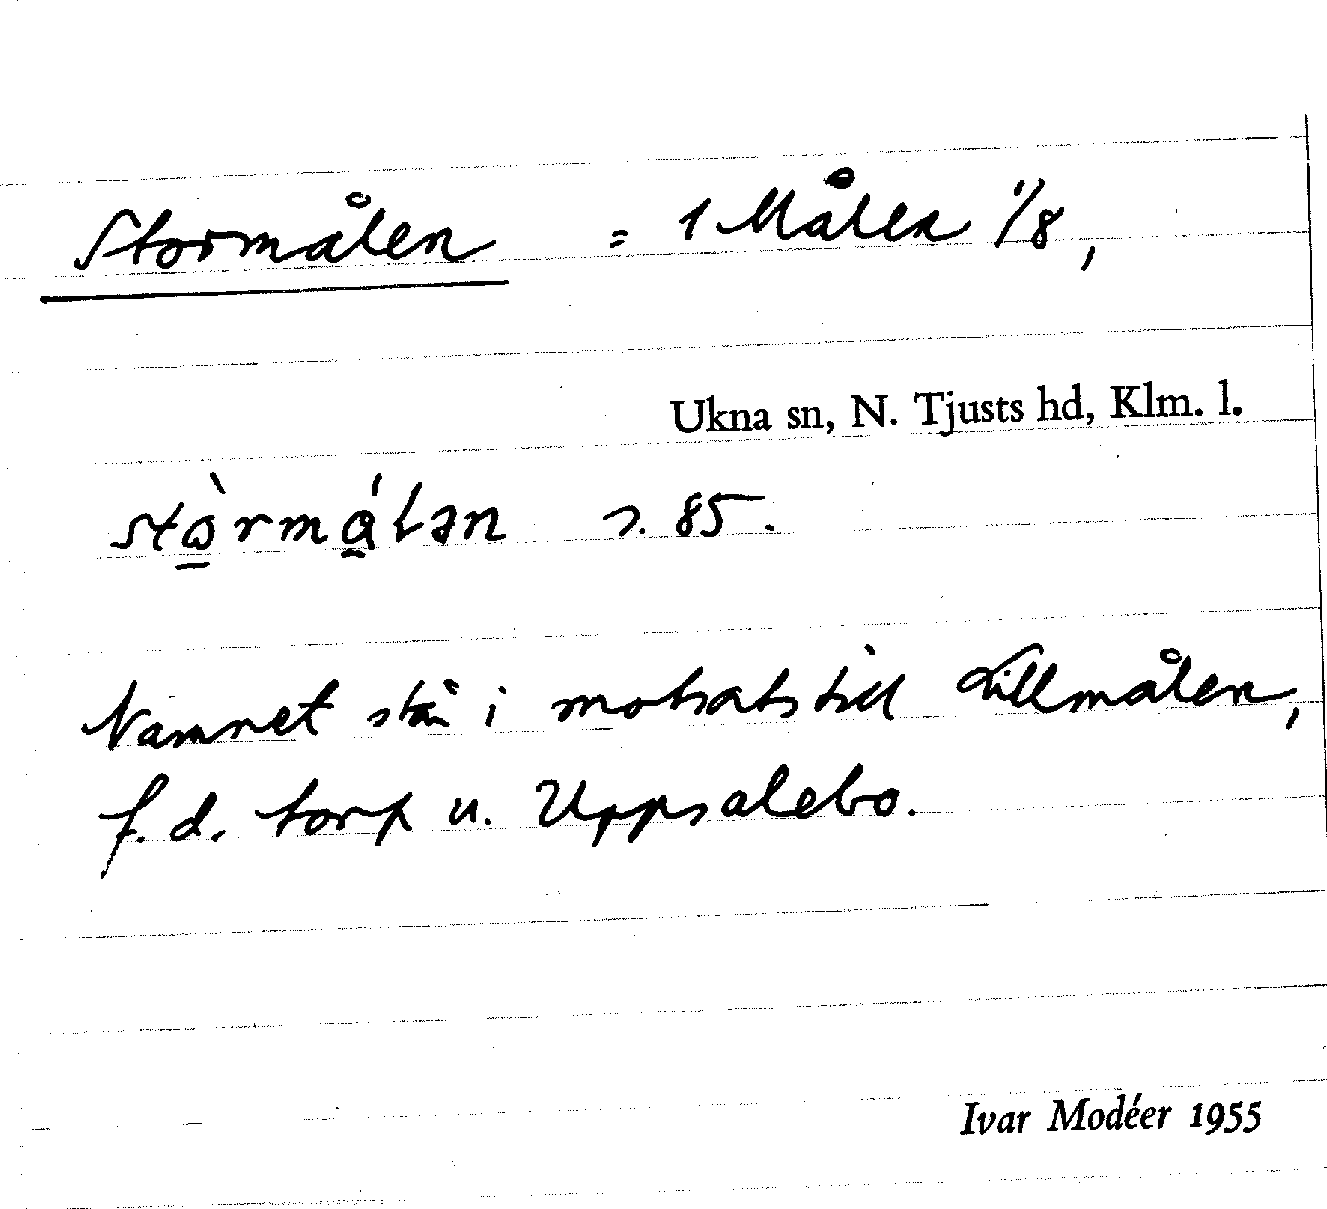 Stormålen = 1 Målen 1/8,
Ukna sn, N. Tjusts hd, Klm. l.
stò̲rmɑ̲́lən s. 85.
Namnet står i motsats till Lillmålen,
f.d. torp u. Uppsalebo.
Ivar Modéer 1955